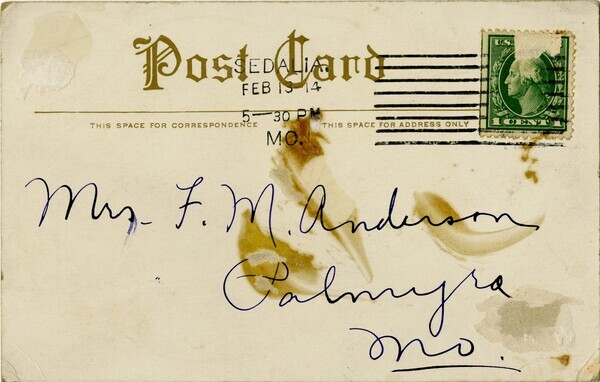 Post Card
SEDALIA,
FEB 13 14
5—30 PM
MO.
U.S.
1 CENT 1
THIS SPACE FOR CORRESPONDENCE
THIS SPACE FOR ADDRESS ONLY
Mrs. F. M. Anderson
Palmyra
Mo.